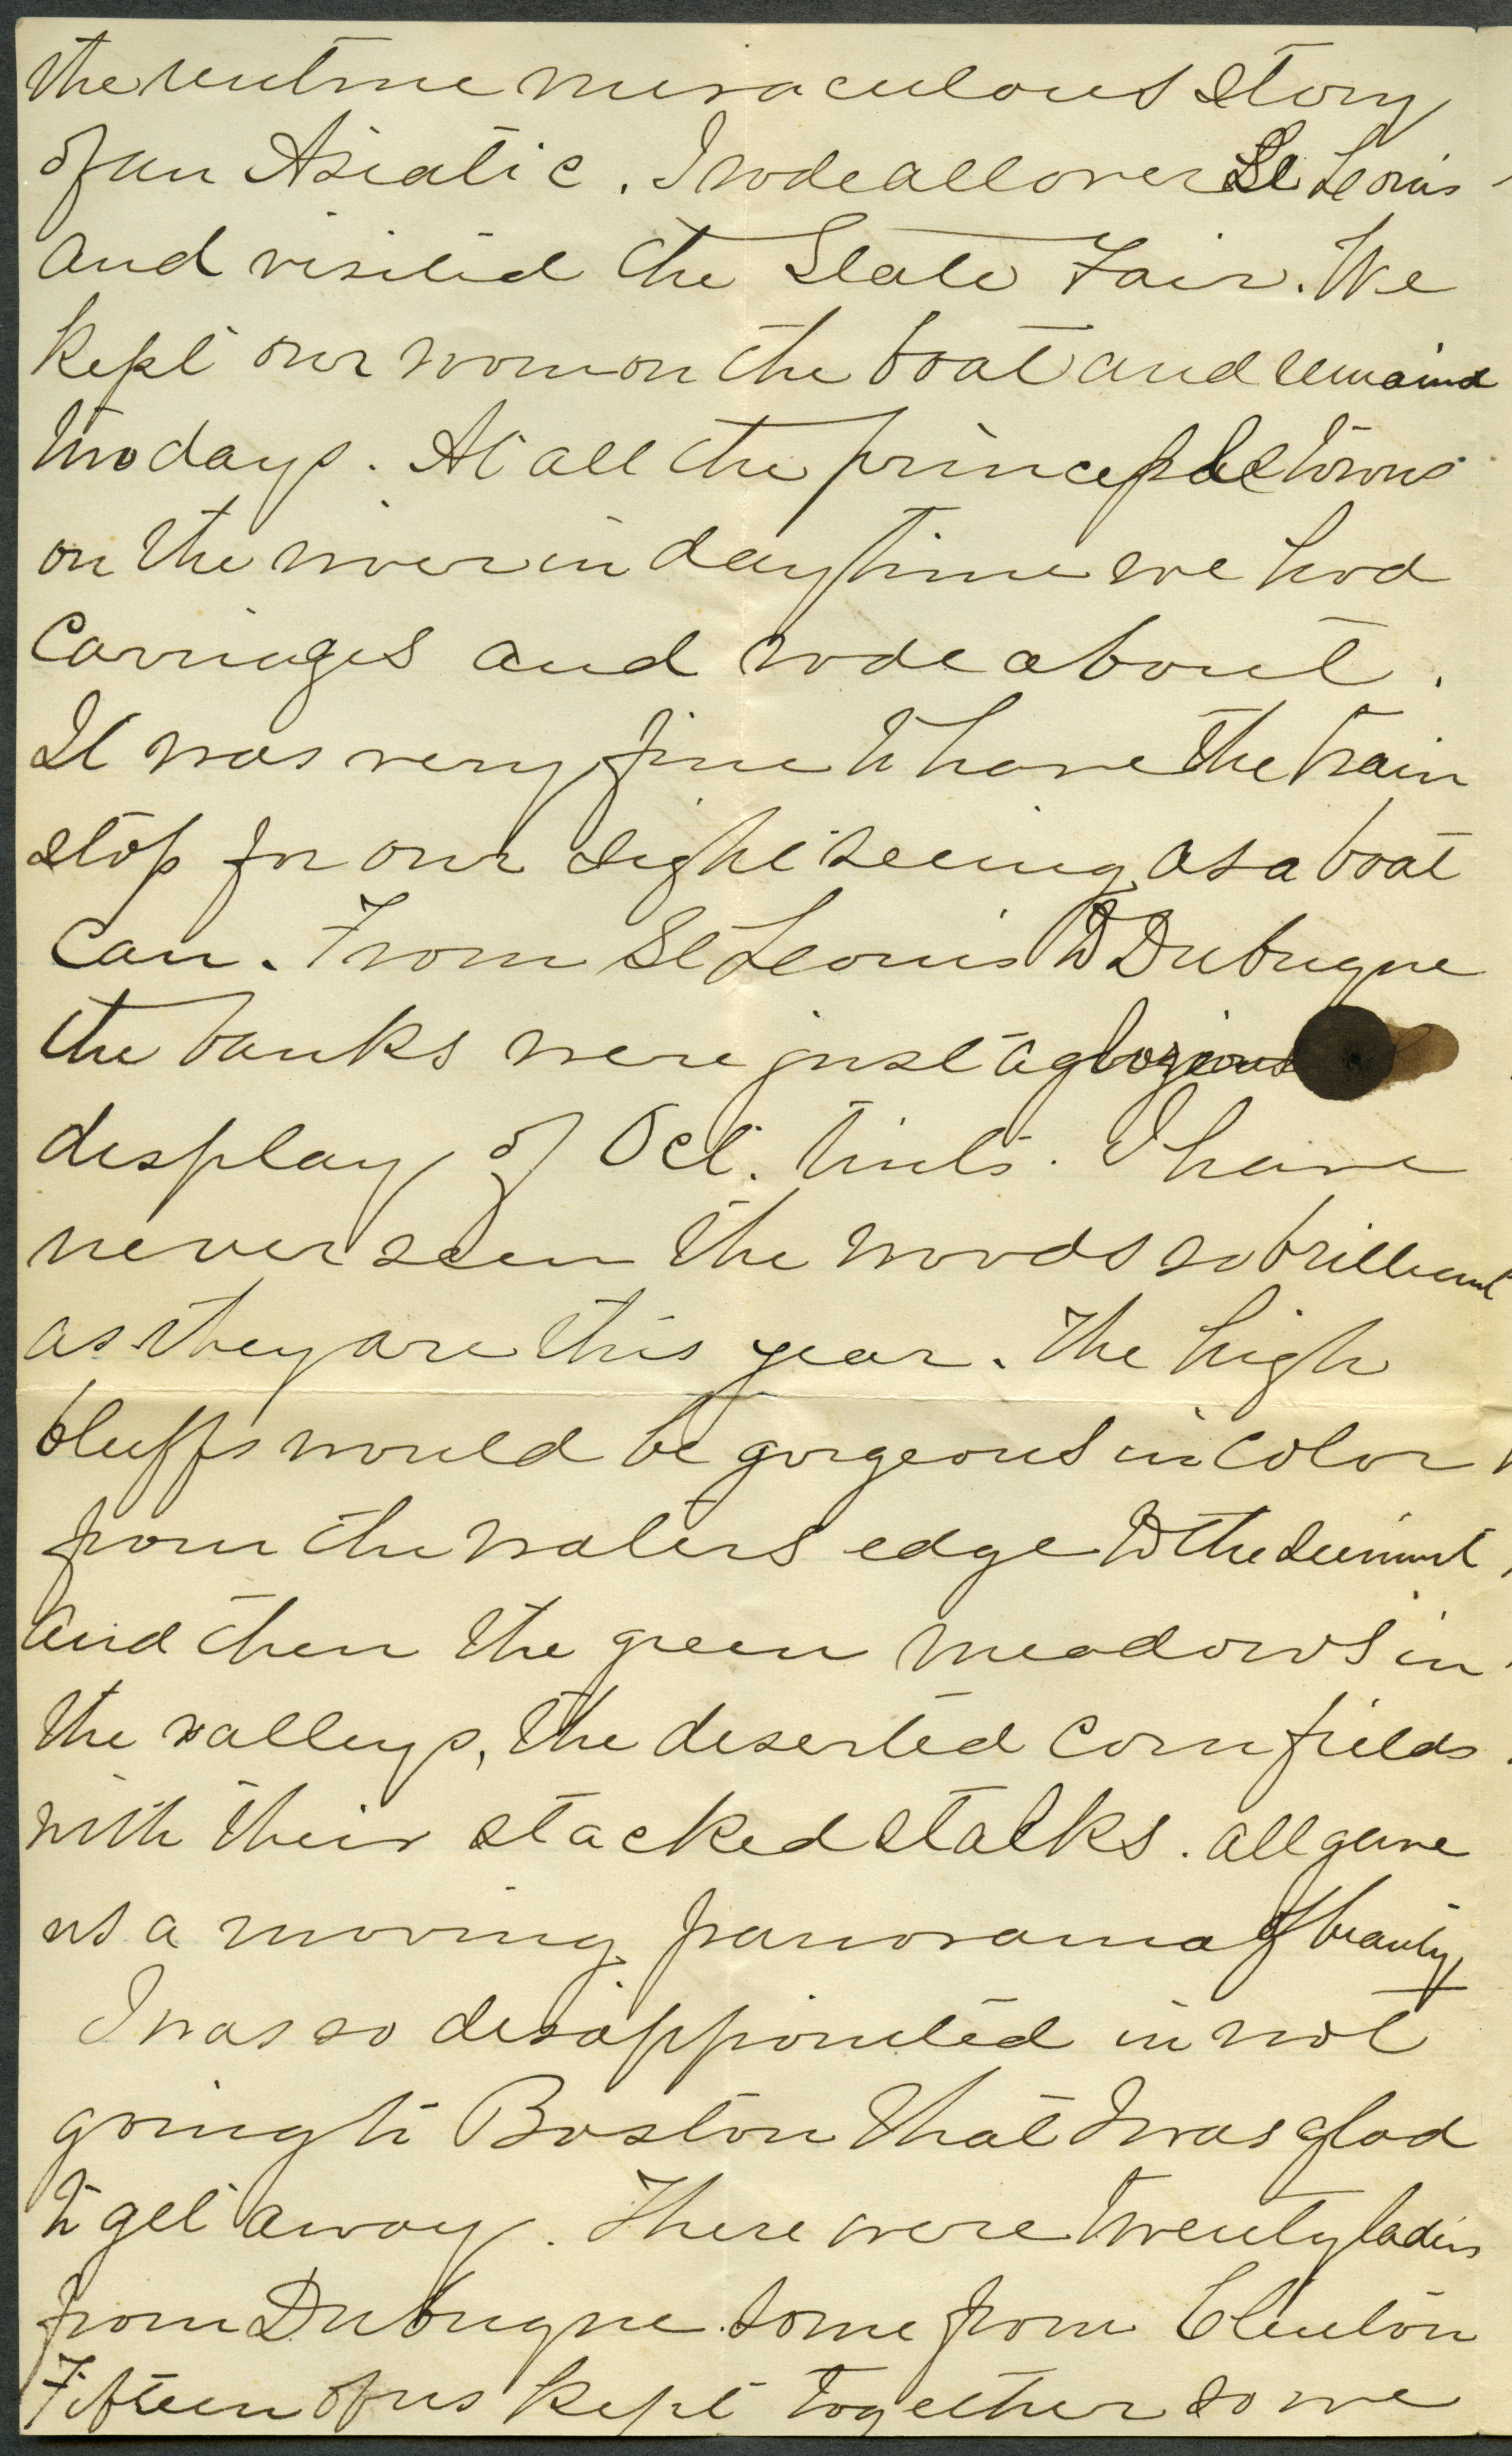 the miraculous story
of an Asiatic. I rode all over St Louis
and visited the State Fair. We
kept our room on the boat and remaind
two days. At all the principle towns
on the river in daytime we had
Carriages and rode about.
It was very fine to have the train
stop for our sight seeing as a boat
can. From St Louis to Dubuque
the banks were just a glorious
display of Oct. tints. I have
never seen the woods so brilliant
as they are this year. The high
bluffs would be gorgeous in color
from the waters edge to the summit,
and then the green meadows in
the valleys, the deserted cornfields
with their stacked stalks. all gave
us a moving panorama of beauty,
I was so disappointed in not
going to Boston that I was glad
to get away. There were twenty ladies
from Dubuque some from Clinton
Fifteen of us kept together so we